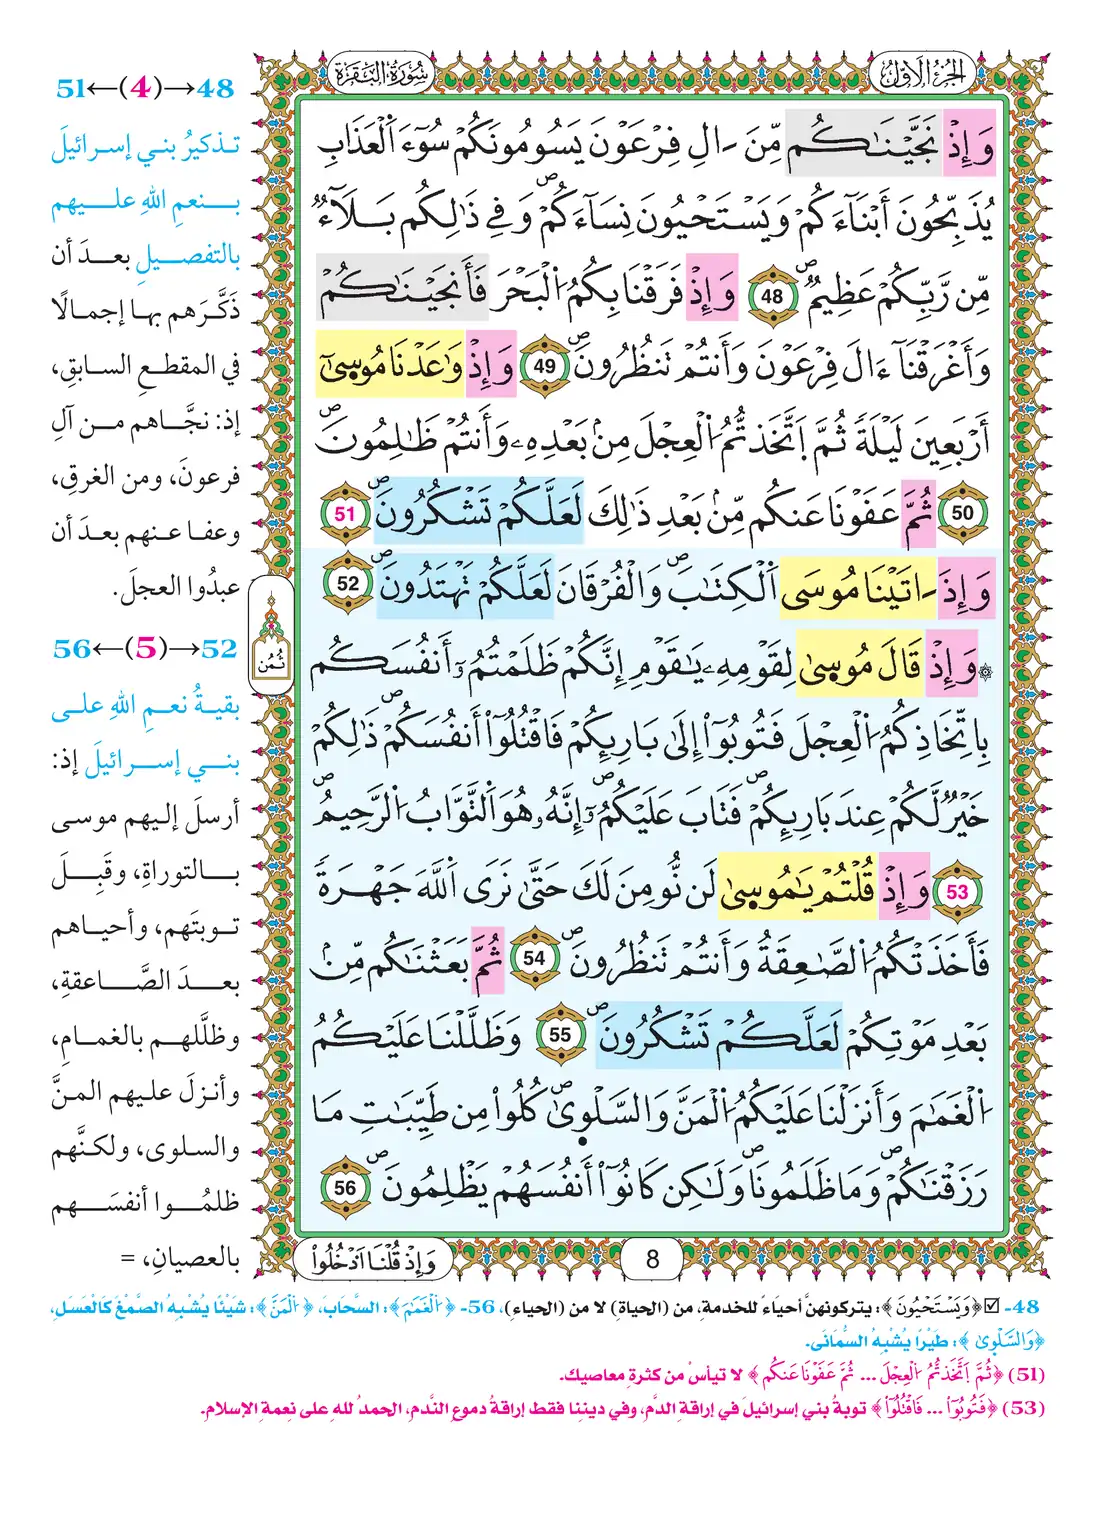 الجُزْءُ الْأَوَّلُ
سُورَةُ الْبَقَرَةِ
وَإِذْ نَجَّيْنَٰكُم مِّنَ ـالِ فِرْعَوْنَ يَسُومُونَكُمْ سُوٓءَ اَ۬لْعَذَابِ
يُذَبِّحُونَ أَبْنَآءَكُمْ وَيَسْتَحْيُونَ نِسَآءَكُمْۖ وَفِے ذَٰلِكُم بَلَآءٞ
مِّن رَّبِّكُمْ عَظِيمٞۖ 48 وَإِذْ فَرَقْنَا بِكُمُ اُ۬لْبَحْرَ فَأَنجَيْنَٰكُمْ
وَأَغْرَقْنَآ ءَالَ فِرْعَوْنَ وَأَنتُمْ تَنظُرُونَۖ 49 وَإِذْ وَٰعَدْنَا مُوس۪يٰٓ
أَرْبَعِينَ لَيْلَةٗ ثُمَّ اَ۪تَّخَذتُّمُ اُ۬لْعِجْلَ مِنۢ بَعْدِهِۦ وَأَنتُمْ ظَٰلِمُونَۖ
50 ثُمَّ عَفَوْنَا عَنكُم مِّنۢ بَعْدِ ذَٰلِكَ لَعَلَّكُمْ تَشْكُرُونَۖ 51
وَإِذَ ـاتَيْنَا مُوسَى اَ۬لْكِتَٰبَۖ وَالْفُرْقَانَ لَعَلَّكُمْ تَهْتَدُونَۖ 52
۞ وَإِذْ قَالَ مُوس۪يٰ لِقَوْمِهِۦ يَٰقَوْمِ إِنَّكُمْ ظَلَمْتُمُۥٓ أَنفُسَكُم
بِاتِّخَاذِكُمُ اُ۬لْعِجْلَ فَتُوبُوٓاْ إِلَىٰ بَارِئِكُمْ فَاقْتُلُوٓاْ أَنفُسَكُمْۖ ذَٰلِكُمْ
خَيْرٞ لَّكُمْ عِندَ بَارِئِكُمْۖ فَتَابَ عَلَيْكُمُۥٓۖ إِنَّهُۥ هُوَ اَ۬لتَّوَّابُ اُ۬لرَّحِيمُۖ
53 وَإِذْ قُلْتُمْ يَٰمُوس۪يٰ لَن نُّومِنَ لَكَ حَتَّىٰ نَرَى اَ۬للَّهَ جَهْرَةٗ
فَأَخَذَتْكُمُ اُ۬لصَّٰعِقَةُ وَأَنتُمْ تَنظُرُونَۖ 54 ثُمَّ بَعَثْنَٰكُم مِّنۢ
بَعْدِ مَوْتِكُمْ لَعَلَّكُمْ تَشْكُرُونَۖ 55 وَظَلَّلْنَا عَلَيْكُمُ
اُ۬لْغَمَٰمَ وَأَنزَلْنَا عَلَيْكُمُ اُ۬لْمَنَّ وَالسَّلْو۪يٰۖ كُلُواْ مِن طَيِّبَٰتِ مَا
رَزَقْنَٰكُمْۖ وَمَا ظَلَمُونَاۖ وَلَٰكِن كَانُوٓاْ أَنفُسَهُمْ يَظْلِمُونَۖ 56
ثُمُن
8
وَإِذْ قُلْنَا اَ۟دْخُلُواْ
48→(4)←51
تذكيرُ بني إسرائيلَ
بنعمِ اللهِ عليهم
بالتفصيلِ بعدَ أن
ذَكَّرَهم بها إجمالًا
في المقطعِ السابقِ،
إذ: نجَّاهم من آلِ
فرعونَ، ومن الغرقِ،
وعفا عنهم بعدَ أن
عبدُوا العجلَ.
52→(5)←56
بقيةُ نعمِ اللهِ على
بني إسرائيلَ إذ:
أرسلَ إليهم موسى
بالتوراةِ، وقَبِلَ
توبتَهم، وأحياهم
بعدَ الصَّاعقةِ،
وظلَّلهم بالغمامِ،
وأنزلَ عليهم المنَّ
والسلوى، ولكنَّهم
ظلمُوا أنفسَهم
بالعصيانِ، =
48- ☑ ﴿وَيَسْتَحْيُونَ﴾: يتركونهنَّ أحيَاءً للخدمة، من (الحياة) لا من (الحياء)، 56- ﴿اُ۬لْغَمَٰمَ﴾: السَّحابَ، ﴿اُ۬لْمَنَّ﴾: شَيْئًا يُشْبِهُ الصَّمْغَ كَالعَسَلِ،
﴿وَالسَّلْو۪يٰ﴾: طَيْرًا يُشْبِهُ السُّمَانَى.
(51) ﴿ثُمَّ اَ۪تَّخَذتُّمُ اُ۬لْعِجْلَ ... ثُمَّ عَفَوْنَا عَنكُم﴾ لا تيأسْ من كثرةِ معاصيك.
(53) ﴿فَتُوبُوٓاْ ... فَاقْتُلُوٓاْ﴾ توبةُ بني إسرائيلَ في إراقةِ الدَّمِ، وفي ديننِا فقط إراقةُ دموعِ النَّدمِ، الحمدُ للهِ على نِعمةِ الإسلام.